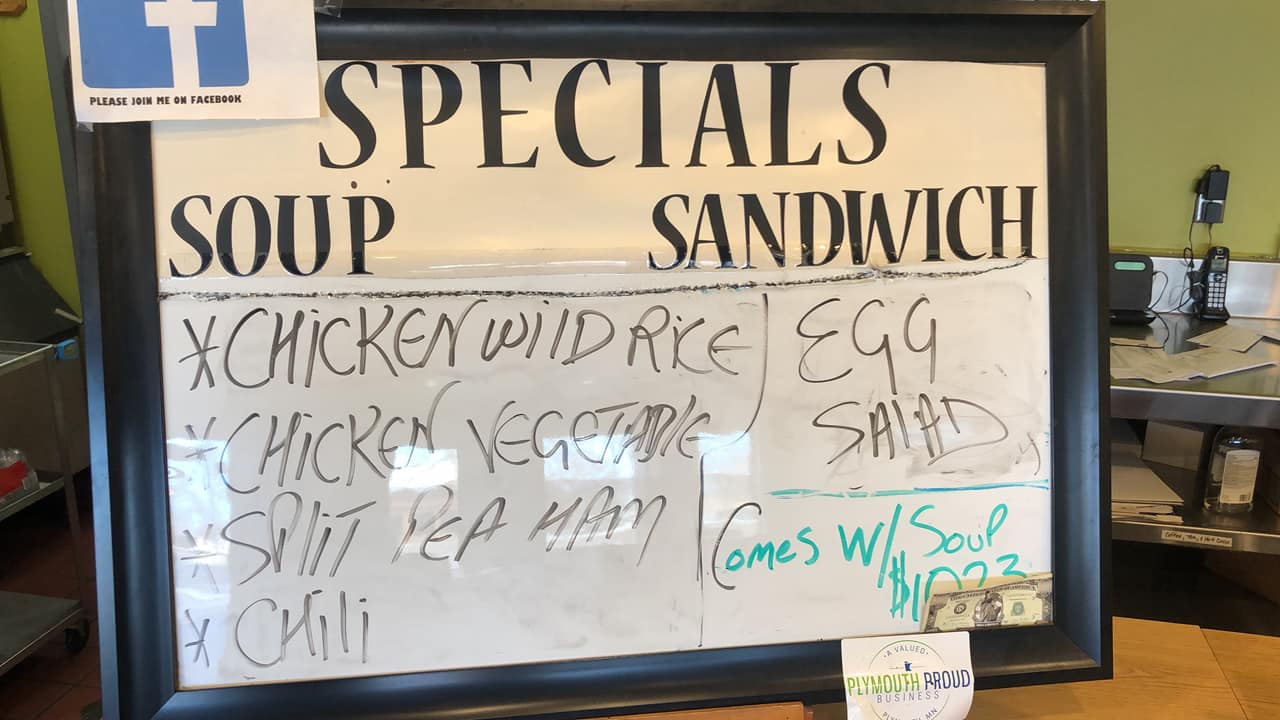 PLEASE JOIN ME ON FACEBOOK
SPECIALS
SOUP
SANDWICH
* CHiCKEN WilD RiCE
* CHiCKEN VEGETABLE
* SPliT PEA HAM
* CHili
EGG
SALAD
Comes W/ Soup
A VALUED
PLYMOUTH PROUD
BUSINESS
PLYMOUTH, MN